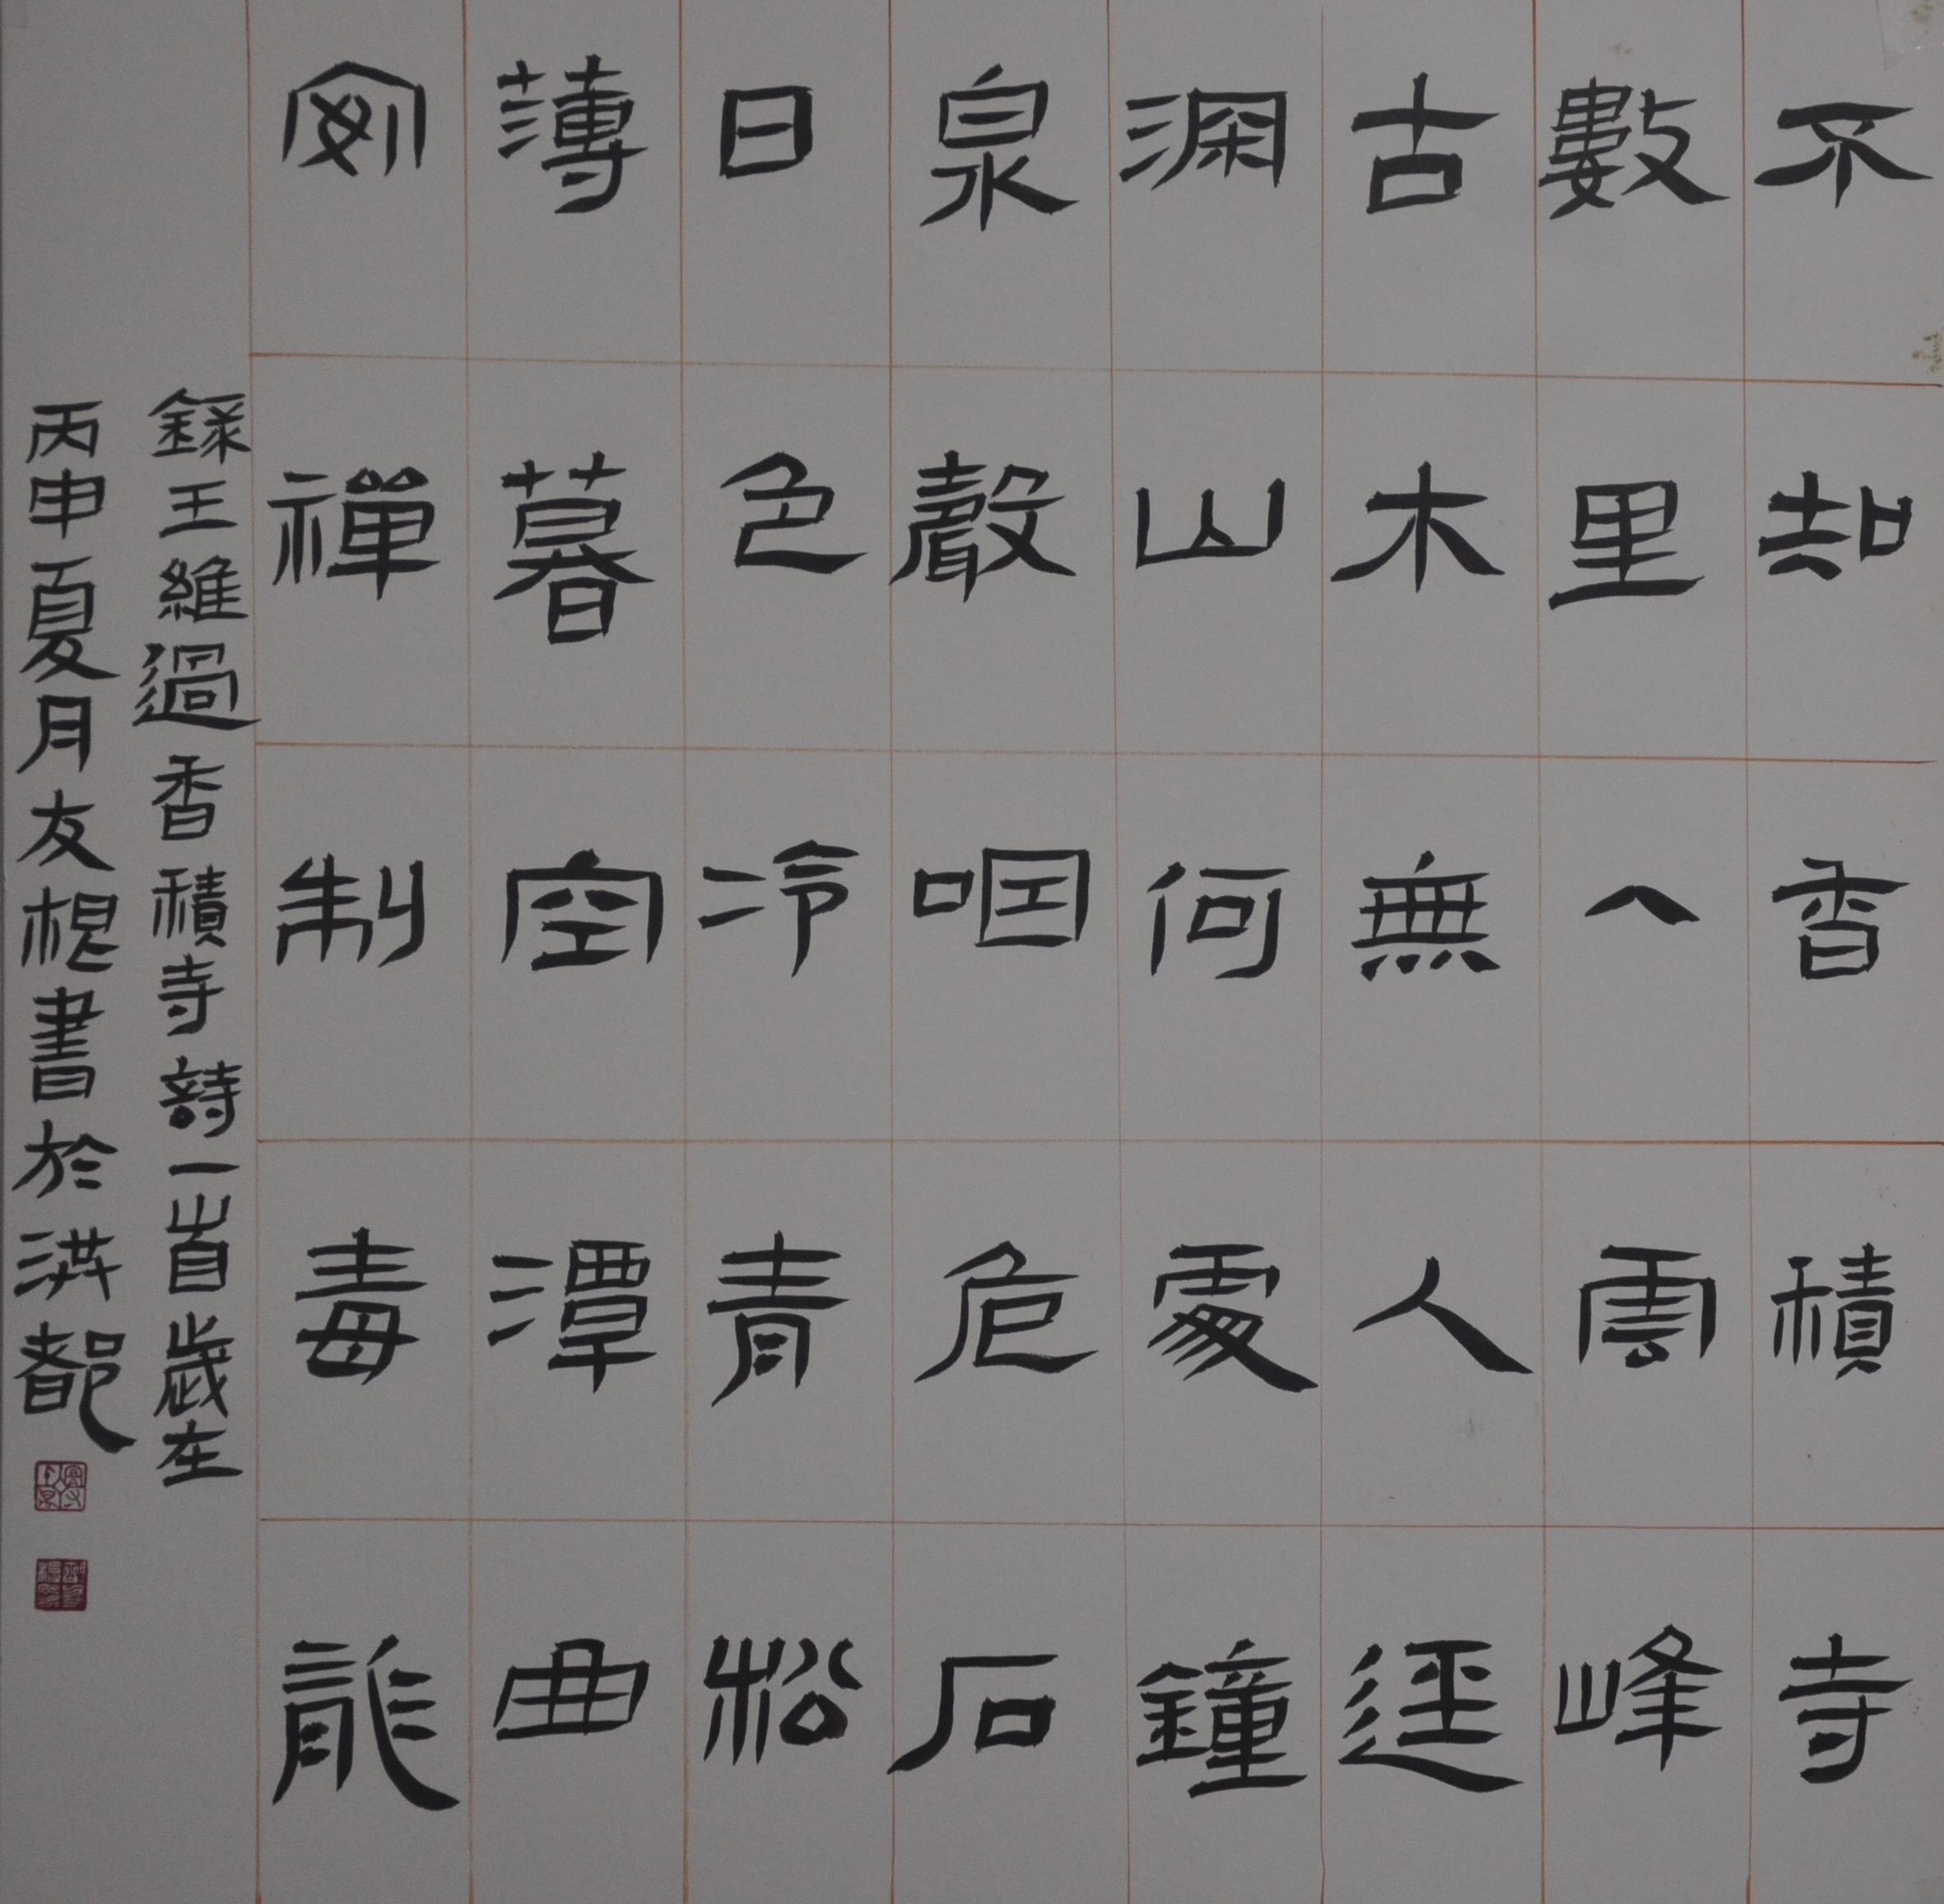 不知香積寺
數里入雲峰
古木無人逕
深山何處鐘
泉聲咽危石
日色冷青松
薄暮空潭曲
安禪制毒龍
錄王維過香積寺詩一首歲在
丙申夏月友根書於洪都